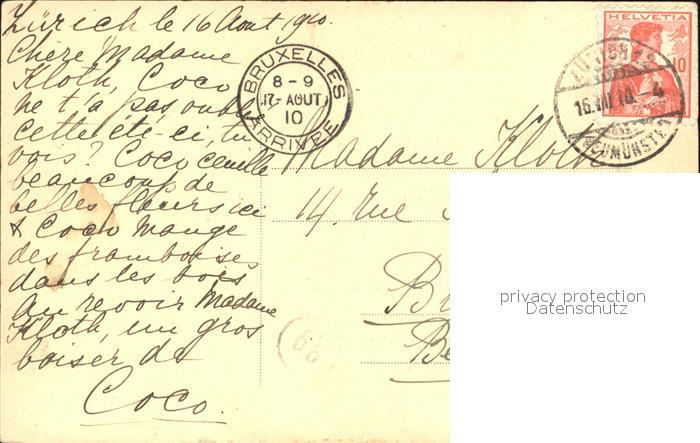 Zürich le 16 Aout 1910.
Chère Madame
Kloth, Coco
ne t'a pas oublié
cette été-ci, tu
vois? Coco cueille
beaucoup de
belles fleurs ici
& Coco mange
des framboises
dans les bois
Au revoir Madame
Kloth, un gros
baiser de
Coco.
BRUXELLES
8-9
17-AOUT
10
ARRIVÉE
HELVETIA
10
ZÜRICH 12
16.VIII.10.-4
NEUMÜNSTER
Madame Kloth
14. Rue
B
Be
privacy protection
Datenschutz